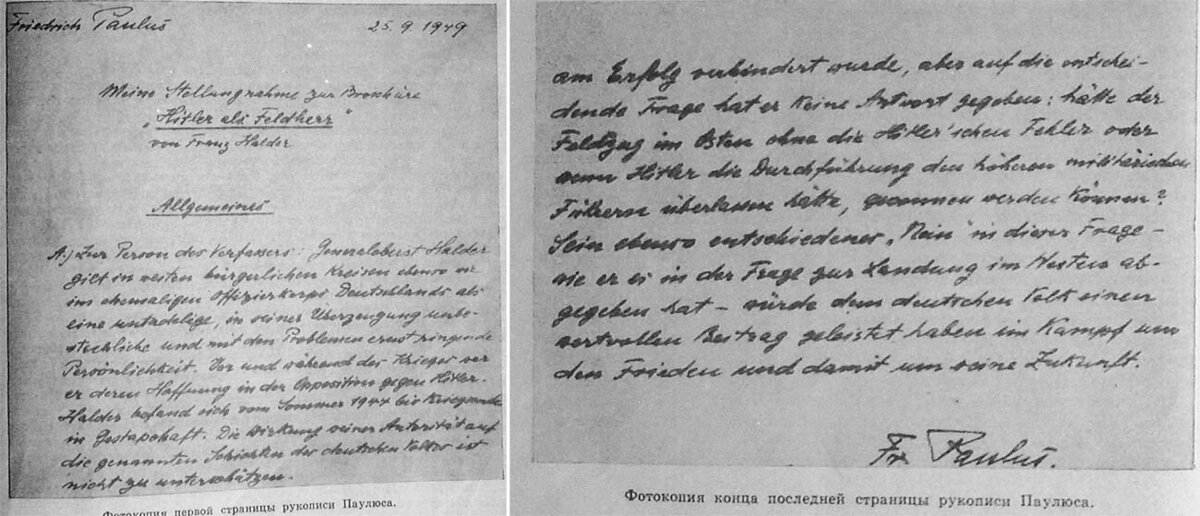 Friedrich Paulus
25.9.1949
Meine Stellungnahme zur Broschüre
„Hitler als Feldherr"
von Franz Halder
Allgemeines
A.) Zur Person des Verfassers: Generaloberst Halder
gilt in weiten bürgerlichen Kreisen ebenso wie
im ehemaligen Offizierkorps Deutschlands als
eine untadelige, in seiner Überzeugung unbe-
stechliche und mit den Problemen ernst ringende
Persönlichkeit. Vor und während des Krieges war
er deren Hoffnung in der Opposition gegen Hitler.
Halder befand sich vom Sommer 1944 bis Kriegsende
in Gestapohaft. Die Wirkung seiner Autorität auf
die genannten Schichten des deutschen Volkes ist
nicht zu unterschätzen.
Фотокопия первой страницы рукописи Паулюса.
am Erfolg verhindert wurde, aber auf die entschei-
dende Frage hat er keine Antwort gegeben: hätte der
Feldzug im Osten ohne die Hitler'schen Fehler oder
wenn Hitler die Durchführung den höheren militärischen
Führern überlassen hätte, gewonnen werden können?
Sein ebenso entschiedenes „Nein" in dieser Frage –
wie er es in der Frage zur Landung im Westen ab-
gegeben hat – würde dem deutschen Volk einen
wertvollen Beitrag geleistet haben im Kampf um
den Frieden und damit um seine Zukunft.
Fr. Paulus.
Фотокопия конца последней страницы рукописи Паулюса.